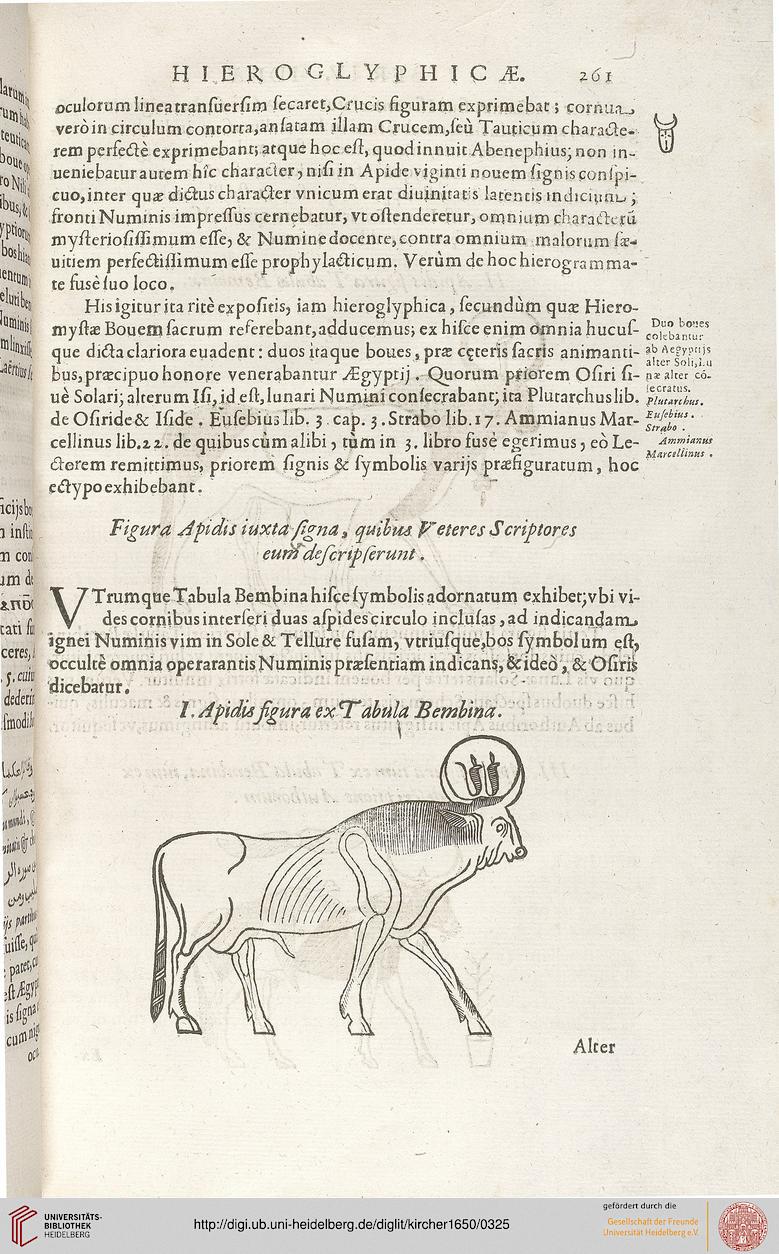 HIEROGLYPHICÆ. 261
oculorum linea transuersim secaret, Crucis figuram exprimebat; cornua
verò in circulum contorta, ansatam illam Crucem, seù Tauticum characte-
rem perfectè exprimebant; atque hoc est, quod innuit Abenephius; non in-
ueniebatur autem hîc character, nisi in Apide viginti nouem signis conspi-
cuo, inter quæ dictus character vnicum erat diuinitatis latentis indicium;
fronti Numinis impressus cernebatur, vt ostenderetur, omnium characterũ
mysteriosissimum esse, & Numine docente, contra omnium malorum sæ-
uitiem perfectissimum esse prophylacticum. Verùm de hoc hierogramma-
te fusè suo loco.
His igitur ita ritè expositis, iam hieroglyphica, secundùm quæ Hiero-
mystæ Bouem sacrum referebant, adducemus; ex hisce enim omnia hucus-
que dicta clariora euadent: duos itaque boues, præ cęteris sacris animanti-
bus, præcipuo honore venerabantur Ægyptij. Quorum priorem Osiri si-
uè Solari; alterum Isi, id est, lunari Numini consecrabant; ita Plutarchus lib.
de Osiride & Iside. Eusebius lib. 3 cap. 3. Strabo lib. 17. Ammianus Mar-
cellinus lib. 22. de quibus cùm alibi, tùm in 3. libro fusè egerimus, eò Le-
ctorem remittimus, priorem signis & symbolis varijs præfiguratum, hoc
ectypo exhibebant.
Duo boues
colebantur
ab Aegyptijs
alter Soli, Lu
næ alter cõ-
secratus.
Plutarchus.
Eusebius.
Strabo.
Ammianus
Marcellinus.
Figura Apidis iuxta signa, quibus Veteres Scriptores
eum descripserunt.
VTrumque Tabula Bembina hisce symbolis adornatum exhibet; vbi vi-
des cornibus interseri duas aspides circulo inclusas, ad indicandam
ignei Numinis vim in Sole & Tellure fusam, vtriusque, bos symbolum est,
occultè omnia operarantis Numinis præsentiam indicans, & ideò, & Osiris
dicebatur.
I. Apidis figura ex Tabula Bembina.
Alter
UNIVERSITÄTS-
BIBLIOTHEK
HEIDELBERG
http://digi.ub.uni-heidelberg.de/diglit/kircher1650/0325
gefördert durch die
Gesellschaft der Freunde
Universität Heidelberg e.V.